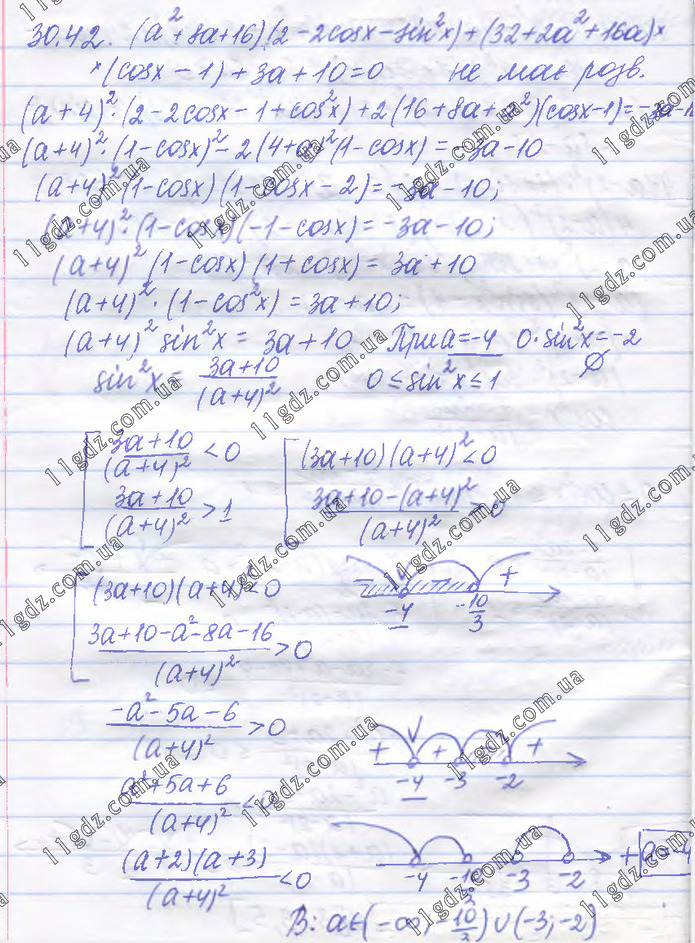 30.42. (a²+8a+16)(2-2cosx-sin²x)+(32+2a²+16a)×
×(cosx-1)+3a+10=0 не має розв.
(a+4)²·(2-2cosx-1+cos²x)+2(16+8a+a²)(cosx-1)=-3a-10
(a+4)²·(1-cosx)²-2(4+a)²(1-cosx)=-3a-10
(a+4)²(1-cosx)(1-cosx-2)=-3a-10;
(a+4)²·(1-cosx)(-1-cosx)=-3a-10;
(a+4)²(1-cosx)(1+cosx)=3a+10
(a+4)²·(1-cos²x)=3a+10;
(a+4)²sin²x=3a+10 При a=-4 0·sin²x=-2
sin²x=(3a+10)/(a+4)² 0≤sin²x≤1 ∅
[ (3a+10)/(a+4)²<0 [ (3a+10)(a+4)²<0
(3a+10)/(a+4)²>1 (3a+10-(a+4)²)/(a+4)²>0
[ (3a+10)(a+4)²<0 -4 -10/3 +
(3a+10-a²-8a-16)/(a+4)²>0
(-a²-5a-6)/(a+4)²>0 + + +
-4 -3 -2
(a²+5a+6)/(a+4)²<0
(a+2)(a+3)/(a+4)²<0 -4 -10/3 -3 -2 + a=-4
В: a∈(-∞;-10/3)∪(-3;-2)
11gdz.com.ua